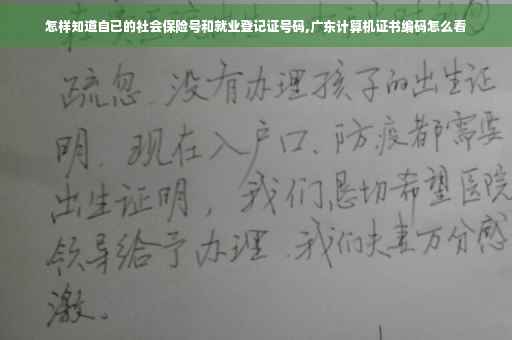 怎样知道自已的社会保险号和就业登记证号码,广东计算机证书编码怎么看
疏忽.没有办理孩子的出生证
明.现在入户口、防疫都需要
出生证明，我们恳切希望医院
领导给予办理.我们夫妻万分感
激。